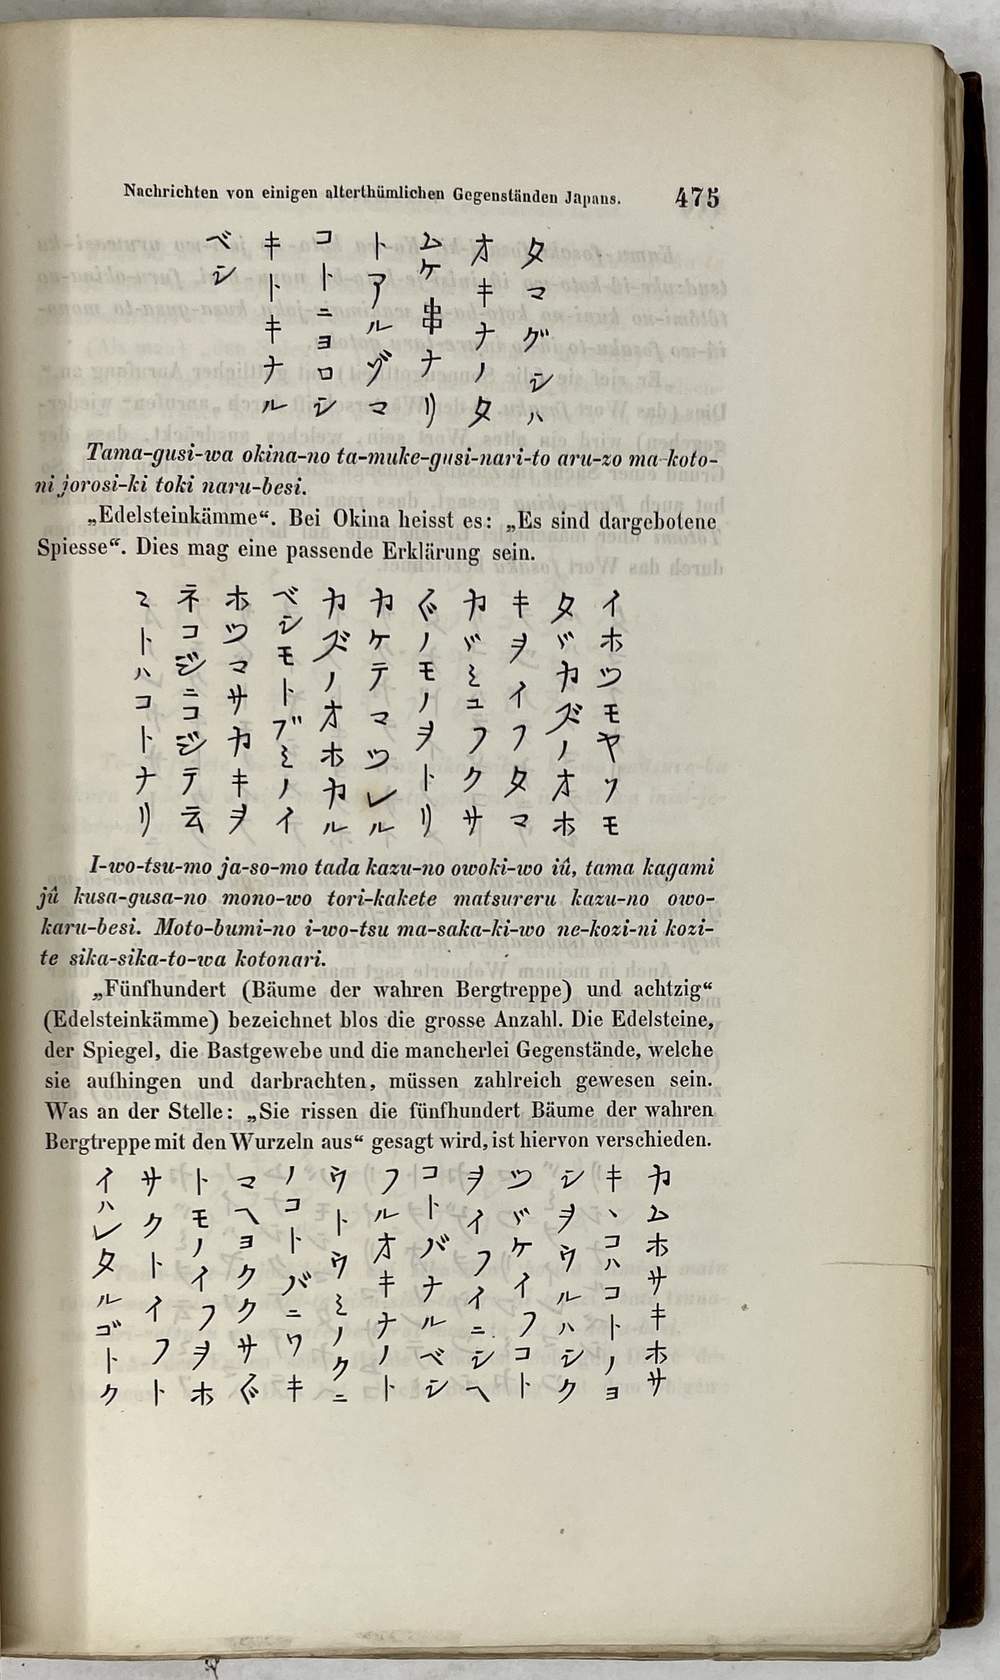 Nachrichten von einigen alterthümlichen Gegenständen Japans. 475
タマグシハ
オキナノタ
ムケ串ナリ
トアルゾマ
コトニヨロシ
キトキナル
ベシ
Tama-gusi-wa okina-no ta-muke-gusi-nari-to aru-zo ma-koto-
ni jorosi-ki toki naru-besi.
„Edelsteinkämme“. Bei Okina heisst es: „Es sind dargebotene
Spiesse“. Dies mag eine passende Erklärung sein.
イホツモヤソモ
タヾカズノオホ
キヲイフタマ
カヾミユフクサ
〴〵ノモノヲトリ
カケテマツレル
カズノオホカル
ベシモトブミノイ
ホツマサカキヲ
ネコジニコジテ云
〻トハコトナリ
I-wo-tsu-mo ja-so-mo tada kazu-no owoki-wo iû, tama kagami
jû kusa-gusa-no mono-wo tori-kakete matsureru kazu-no owo-
karu-besi. Moto-bumi-no i-wo-tsu ma-saka-ki-wo ne-kozi-ni kozi-
te sika-sika-to-wa kotonari.
„Fünfhundert (Bäume der wahren Bergtreppe) und achtzig“
(Edelsteinkämme) bezeichnet blos die grosse Anzahl. Die Edelsteine,
der Spiegel, die Bastgewebe und die mancherlei Gegenstände, welche
sie aufhingen und darbrachten, müssen zahlreich gewesen sein.
Was an der Stelle: „Sie rissen die fünfhundert Bäume der wahren
Bergtreppe mit den Wurzeln aus“ gesagt wird, ist hiervon verschieden.
カムホサキホサ
キヽコハコトノヨ
シヲウルハシク
ツヾケイフコト
ヲイフイニシヘ
コトバナルベシ
フルオキナノト
ウトウミノクニ
ノコトバニワキ
マヘヨククサ〴〵
トモノイフヲホ
サクトイフト
イハレタルゴトク